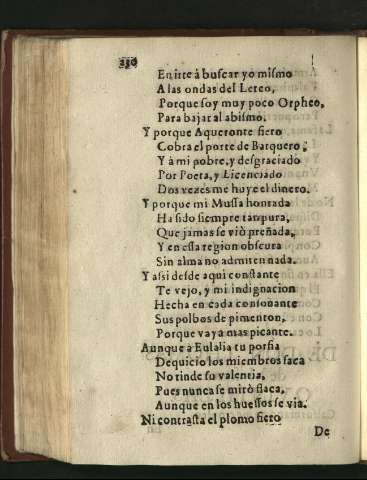 230
En irte à buscar yo mismo
A las ondas del Leteo,
Porque soy muy poco Orpheo,
Para bajar al abismo.
Y porque Aqueronte fiero
Cobra el porte de Barquero;
Y à mi pobre, y desgraciado
Por Poeta, y Licenciado
Dos vezes me huye el dinero.
Y porque mi Mussa honrada
Ha sido siempre tan pura,
Que jamas se viò preñada,
Y en essa region obscura
Sin alma no admiten nada.
Y assi desde aqui constante
Te vejo, y mi indignacion
Hecha en cada consonante
Sus polbos de pimenton,
Porque vaya mas picante.
Aunque à Eulalia tu porfia
De quicio los miembros saca
No rinde su valentia,
Pues nunca se mirò flaca,
Aunque en los huessos se via.
Ni contrasta el plomo fiero
De